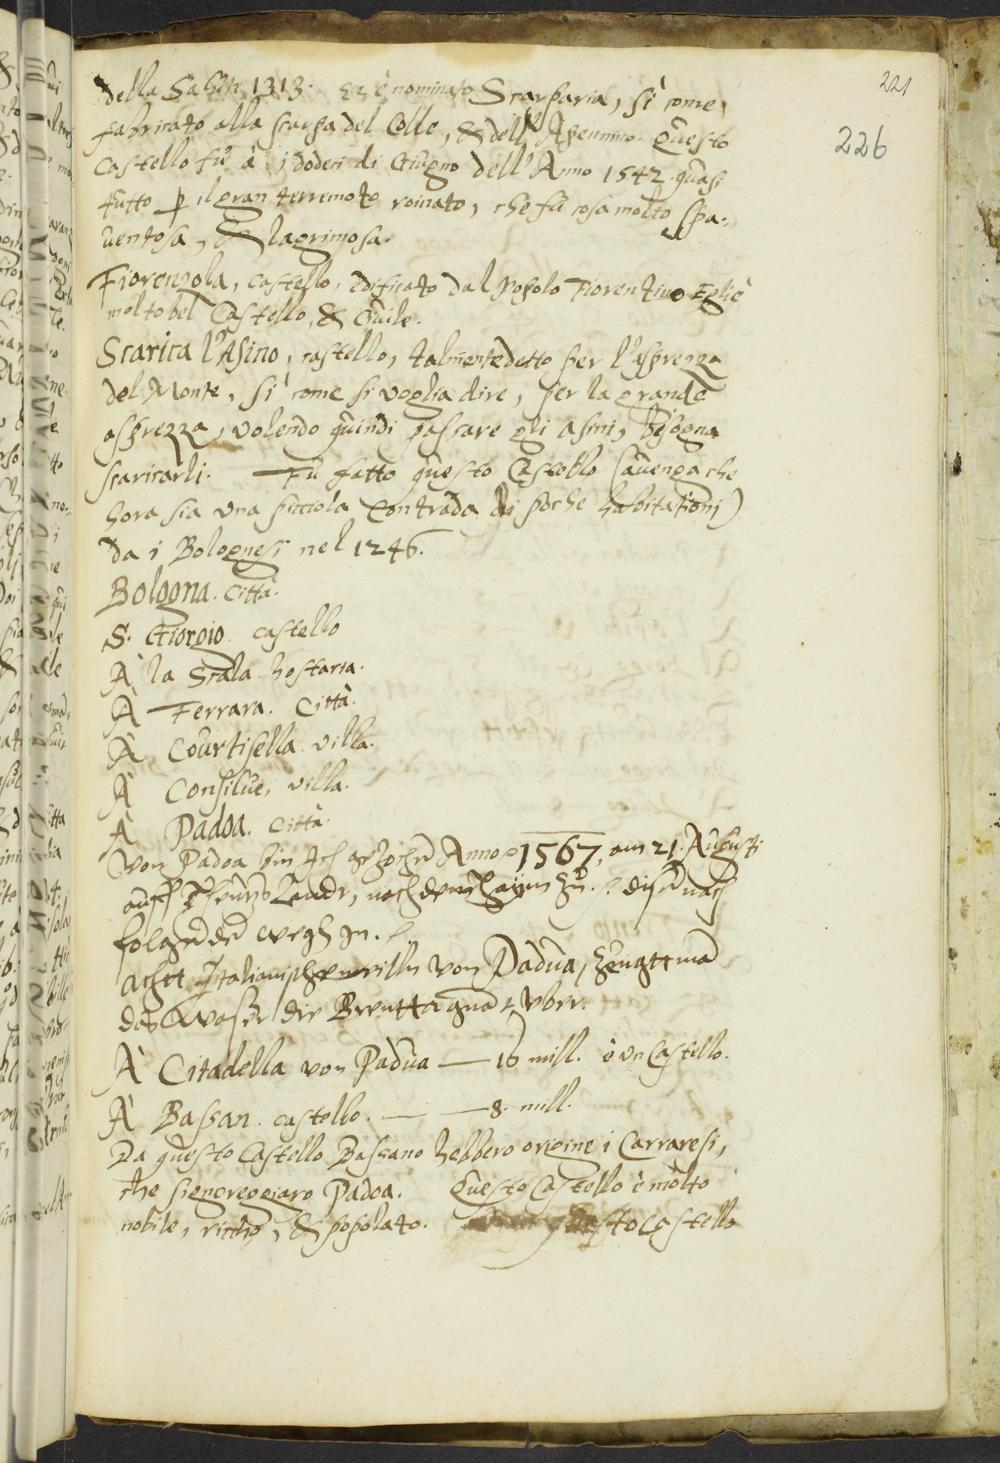 221
226
della Salute 1313. Et è nominato Scarparia, sì come
fabricato alla scarpa del Colle, & dell' Apennino. Questo
Castello fù à i dodeci di Giugno dell' Anno 1542 quasi
tutto p il gran terremoto roinato, che fù cosa molto spa-
uentosa, & lagrimosa.
Fiorenzola, castello, edificato dal Popolo Fiorentino Egli è
molto bel Castello, & Ciuile.
Scarica l'Asino, castello, talmente detto per l'asprezza
del Monte, sì come si voglia dire, per la grande
asprezza, volendo quindi passare gli asini, bisogna
scaricarli. Fù fatto questo Castello (auenga che
hora sia vna picciola Contrada di poche habitationi)
da i Bolognesi nel 1246.
Bologna. Città.
S. Giorgio. castello
À la Scala hostaria.
À Ferrara. Città.
À Courtisella villa.
À Consilue, villa.
À Padoa. Città.
Von Padoa bin Ich Anno 1567, am 21. Augusti
auff Landt, nach
folgenden wegh
Acht Italianische von Padua,
das Wasser die vber.
À Citadella von Padua — 18 mill. è vn Castello.
À Bassan. castello. — 8. mill.
Da questo Castello Bassano hebbero origine i Carraresi,
che signoreggiaro Padoa. Questo Castello è molto
nobile, riccho, & popolato. Castello